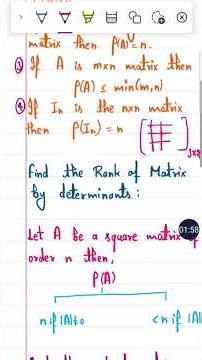 matrix then ρ(A) = n.
③ If A is mxn matrix then
ρ(A) ≤ min(m,n)
④ If In is the nxn matrix
then ρ(In) = n
Find the Rank of Matrix
by determinants :
01:58
Let A be a square matrix of
order n then,
ρ(A)
n if |A|≠0 < n if |A|